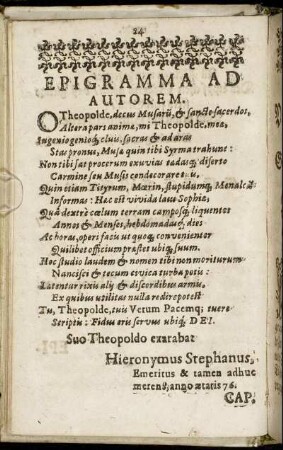 24
EPIGRAMMA AD
AUTOREM.
O Theopolde, decus Musarũ, & sancte sacerdos,
Altera pars animæ, mi Theopolde, meæ,
Ingenio genioq́; cluis, sacras & ad aras
Stas pronus, Musa quin tibi Syrma trahunt:
Non tibi sat procerum exuvias tædasq́; diserto
Carmine seu Musis condecorare
Quin etiam Tityrum, Mœrin, stupidumq́; Menalcã
Informas: Hac est vivida laus Sophiæ,
Quâ deutrò cælum terram camposq́; liquentes
Annos & Menses, hebdomadasq́; dies
At horas, operi facis ut quoq́; convenienter
Quilibet officium præstet ubiq́; suum.
Hoc studio laudem & nomen tibi non moriturum
Nancisci & tecum civica turba potis:
Latentur rixis alij & discordibus armis,
Ex quibus utilitas nulla redire potest
Tu, Theopolde, tuis Verum Pacemq́; tuere
Scriptis: Fidus eris servus ubiq́; DEI.
Suo Theopoldo exarabat
Hieronymus Stephanus,
Emeritus & tamen adhuc
merens, anno ætatis 76.
CAP.